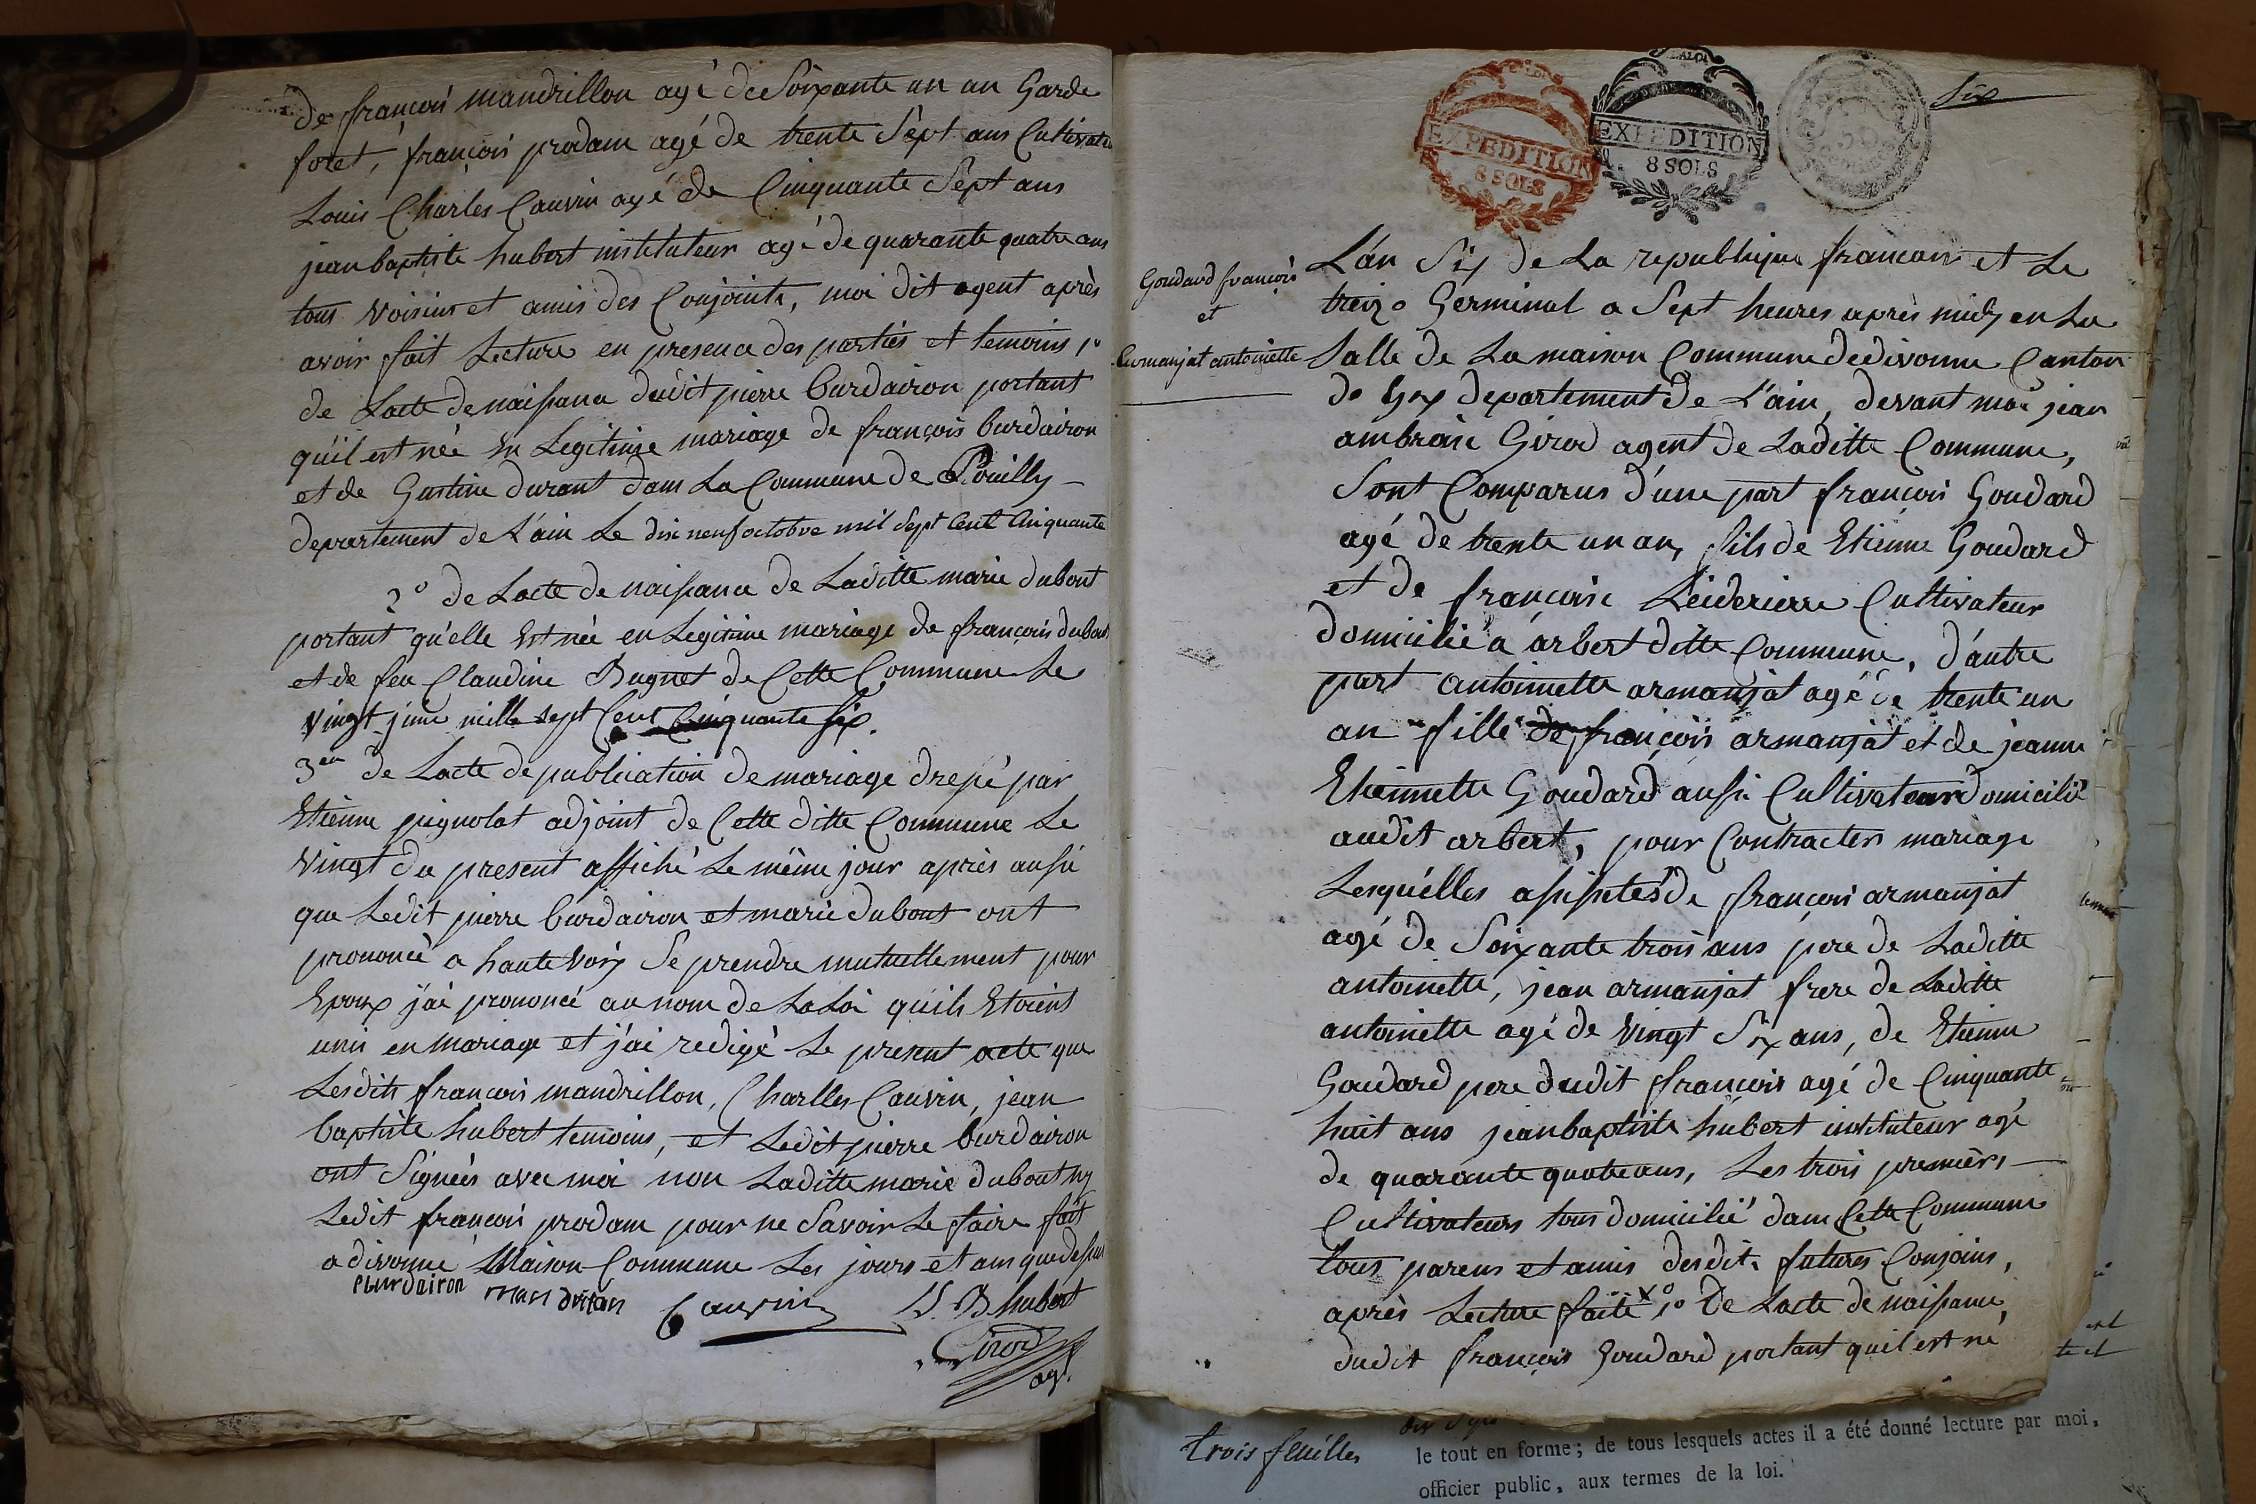 de françois mandrillon agé de Soixante un an Garde
foret, françois prodam agé de trente Sept ans Cultivate
Louis Charles Cauvin agé de Cinquante Sept ans
jean baptiste hubert instituteur agé de quarante quatre ans
tous voisins et amis des Conjoints, moi dit agent après
avoir fait Lecture en presence des parties et temoins 1°
de Lacte de naissance dudit pierre burdairon portant
qu'il est née en Legitime mariage de françois burdairon
et de Gustine durant dans La Commune de Pouilly
departement de L'ain Le dix neuf octobre mil Sept Cent Cinquante
2° de Lacte de naissance de Laditte marie dubout
portant qu'elle Est née en Legitime mariage de françois dubout
et de feu Claudine Bugnet de Cette Commune Le
vingt juin mille sept Cent Cinquante six.
3en de Lacte de publication de mariage dressé par
Etienne pignolat adjoint de Cette ditte Commune Le
vingt du present affiché Le même jour après aussi
que Ledit pierre burdairon et marie dubout ont
prononcé a haute voix Se prendre mutuellement pour
Epoux j'ai prononcé au nom de La Loi quils Etoient
unis en mariage et j'ai redigé Le present acte que
Lesdits françois mandrillon, Charlles Cauvin, jean
baptiste hubert temoins, et Ledit pierre burdairon
ont Signées avec moi non Laditte marie dubout ny
Ledit françois prodam pour ne Savoir Le faire fait
a divonne Maison Commune Les jours et ans que dessus
pburdairon mandrillon Cauvin J. B hubert
Girod
agt.
EXPEDITION
8 SOLS
EXPEDITION
8 SOLS
Six
Goudard françois
et
armanjat antoinette
L'an Six de La republique francais et Le
treize Germinal a Sept heures après midy en La
Salle de La maison Commune de divonne Canton
de Gex departement de L'ain, devant moi jean
ambroise Girod agent de Laditte Commune,
Sont Comparus d'une part françois Goudard
agé de trente un an, fils de Etienne Goudard
et de françoise Cultivateur
domicilié a arbert ditte Commune, d'autre
part antoinette armanjat agé de trente un
an fille de françois armanjat et de jeanne
Etiennette Goudard aussi Cultivateur domicilié
audit arbert, pour Contracter mariage
Lesquelles assistés de françois armanjat
agé de Soixante trois ans pere de Laditte
antoinette, jean armanjat frere de Laditte
antoinette agé de vingt Six ans, de Etienne
Goudard pere dudit françois agé de Cinquante
huit ans jean baptiste hubert instituteur agé
de quarante quatre ans, Les trois premiers
Cultivateurs tous domicilié dans Cette Commune
tous parens et amis desdits futures Conjoins,
après Lecture faite 1° De Lacte de naissance
dudit françois Goudard portant quil est né
trois feuilles
le tout en forme; de tous lesquels actes il a été donné lecture par moi,
officier public, aux termes de la loi.